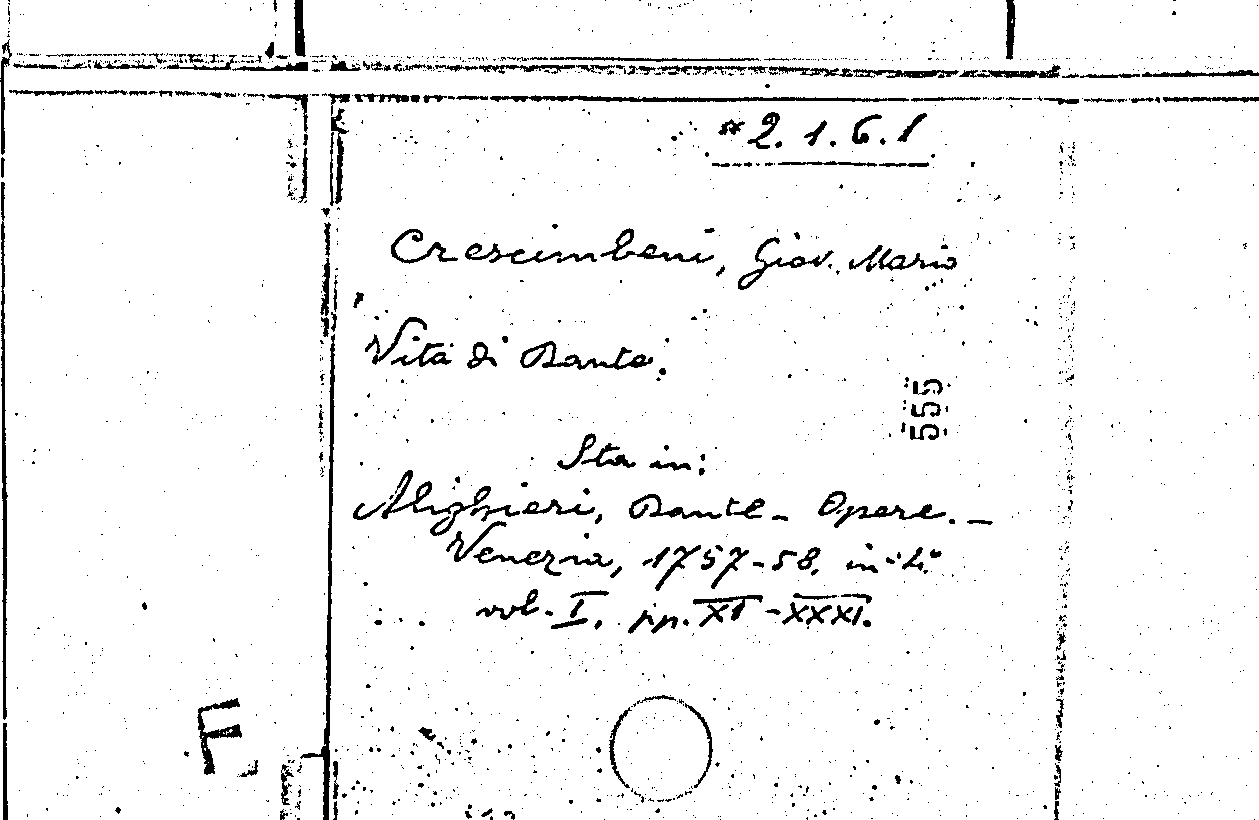 * 2. 1. 6. 1
Crescimbeni, Giov. Mario
Vita di Dante.
555
Sta in:
Alighieri, Dante - Opere. -
Venezia, 1757-58, in-4°
vol. I, pp. XI - XXXI.
F